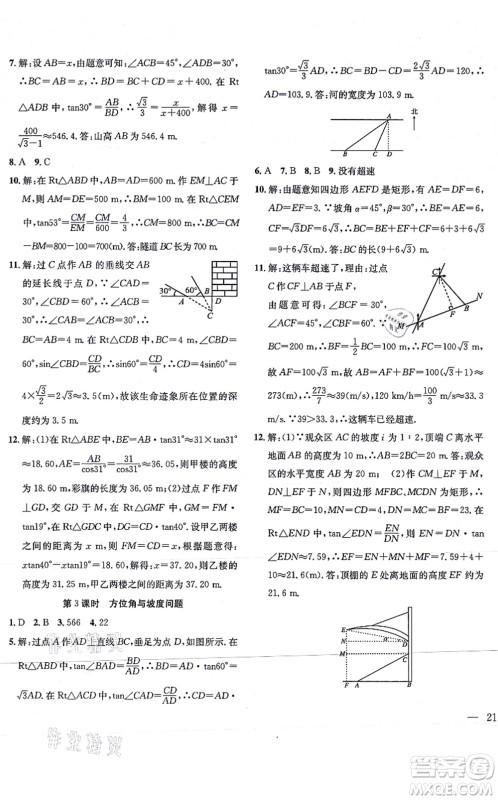 7. 解：设AB=x，由题意可知：∠ACB=45°，∠ADB=30°，
∴BC=AB=x，∴BD=BC+CD=x+400. 在Rt
△ADB中，tan30°=AB/BD，∴√3/3=x/(x+400)，解得x=
400/(√3-1)≈546.4. 答：山高为546.4 m.
8. A 9. C
10. 解：在Rt△ADM中，AD=AM=600 m. 作EM⊥AC于
M，则AM=DE=500 m，∴BM=100 m. 在Rt△CEM
中，tan53°=CM/EM=CM/600=4/3，∴CM=800(m)，∴BC=CM
-BM=800-100=700(m). 答：隧道BC长为700 m.
11. 解：过C点作AB的垂线交AB
的延长线于点D，∵∠CAD=
30°，∠CBD=60°，∴∠ACB=
30°，∴∠CAB=∠ACB=30°，
∴BC=AB=4 m. 在Rt△CDB中，BC=4 m，∠CBD=
60°，sin∠CBD=CD/BC，∴sin60°=CD/4，∴CD=4sin60°=
4×√3/2=2√3≈3.5，故该生命迹象所在位置的深度
约为3.5 m.
12. 解：(1)在Rt△ABE中，BE=AB·tan31°=31·tan31°
≈18.60，AE=AB/cos31°=31/cos31°≈36.05，则甲楼的高度
为18.60 m，彩旗的长度为36.05 m；(2)过点F作FM
⊥GD，交GD于M，在Rt△GMF中，GM=FM·
tan19°，在Rt△GDC中，DG=CD·tan40°，设甲乙两楼
之间的距离为x m，则FM=CD=x，根据题意得：
xtan40°-xtan19°=18.60，解得x=37.20，则乙楼的高
度为31.25 m，甲乙两楼之间的距离为37.20 m.
第3课时 方位角与坡度问题
1. D 2. B 3. 566 4. 22
5. 解：过点A作AD⊥直线BC，垂足为点D，如图所示，
在Rt△ABD中，tan∠BAD=BD/AD，∴BD=AD·tan60°=
√3AD. 在Rt△ACD中，tan∠CAD=CD/AD，∴CD=AD·
tan30°=√3/3AD，∴BC=BD-CD=2√3/3AD=120，∴
AD=103.9. 答：河的宽度为103.9 m.
北
A
B C D
6. A 7. B 8. B 9. 没有超速
10. 解：由题意知四边形AEFD是矩形，有AE=DF=6，
AD=EF=3，∵坡角α=45°，β=30°，∴BE=AE=6，
CF=√3DF=6√3，∴BC=BE+EF+CF=6+3+6√3
=(9+6√3)(m). 答：BC的长度为(9+6√3)m.
11. 解：这辆车超速了，理由：过点
C作CF⊥AB于点F，
由题意可得：∠BCF=30°，
∠ACF=45°，∴AF=CF，∵
BC=200 m，∴BF=1/2BC=100 m，∴FC=AF=
100√3(m)，故AB=AF+BF=100(√3+1)≈
273(m)，∴273/7≈39(m/s)，∵120 km/h=100/3≈
33(m/s)，∵39>33，∴这辆车已经超速.
12. 解：(1)∵观众区AC的坡度i为1：2，顶端C离水平
地面AB的高度为10 m，∴AB=2BC=20(m). 答：观众
区的水平宽度AB为20 m；(2)作CM⊥EF于M，
DN⊥EF于N，则四边形MFBC、MCDN为矩形，∴MF
=BC=10，MN=CD=4，DN=MC=BF=23，在
Rt△END中，tan∠EDN=EN/DN，则EN=DN·
tan∠EDN≈7.59，∴EF=EN+MN+MF=7.59+4+10
≈21.6(m). 答：顶棚的E处离地面的高度EF约为
21.6 m.
E
N
M
F A B
C
D
— 21